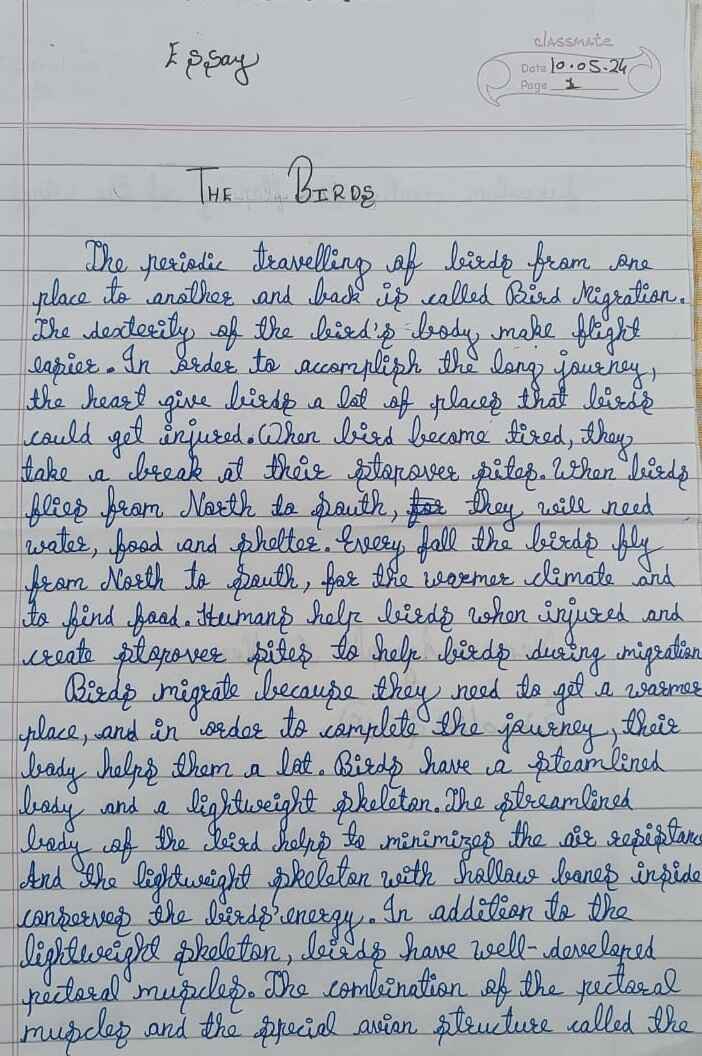 Essay
classmate
Date 10.05.24
Page 1
THE BIRDS
The periodic travelling of birds from one
place to another and back is called Bird Migration.
The dexterity of the bird's body make flight
easier. In order to accomplish the long journey,
the heart give birds a lot of places that birds
could get injured. When bird become tired, they
take a break at their stopover sites. When birds
flies from North to south, for they will need
water, food and shelter. Every fall the birds fly
from North to South, for the warmer climate and
to find food. Humans help birds when injured and
create stopover sites to help birds during migration
Birds migrate because they need to get a warmer
place, and in order to complete the journey, their
body helps them a lot. Birds have a steamlined
body and a lightweight skeleton. The streamlined
body of the bird helps to minimizes the air resistanc
And the lightweight skeleton with hollow bones inside
conserves the birds' energy. In addition to the
lightweight skeleton, birds have well-developed
pectoral muscles. The combination of the pectoral
muscles and the special avian structure called the